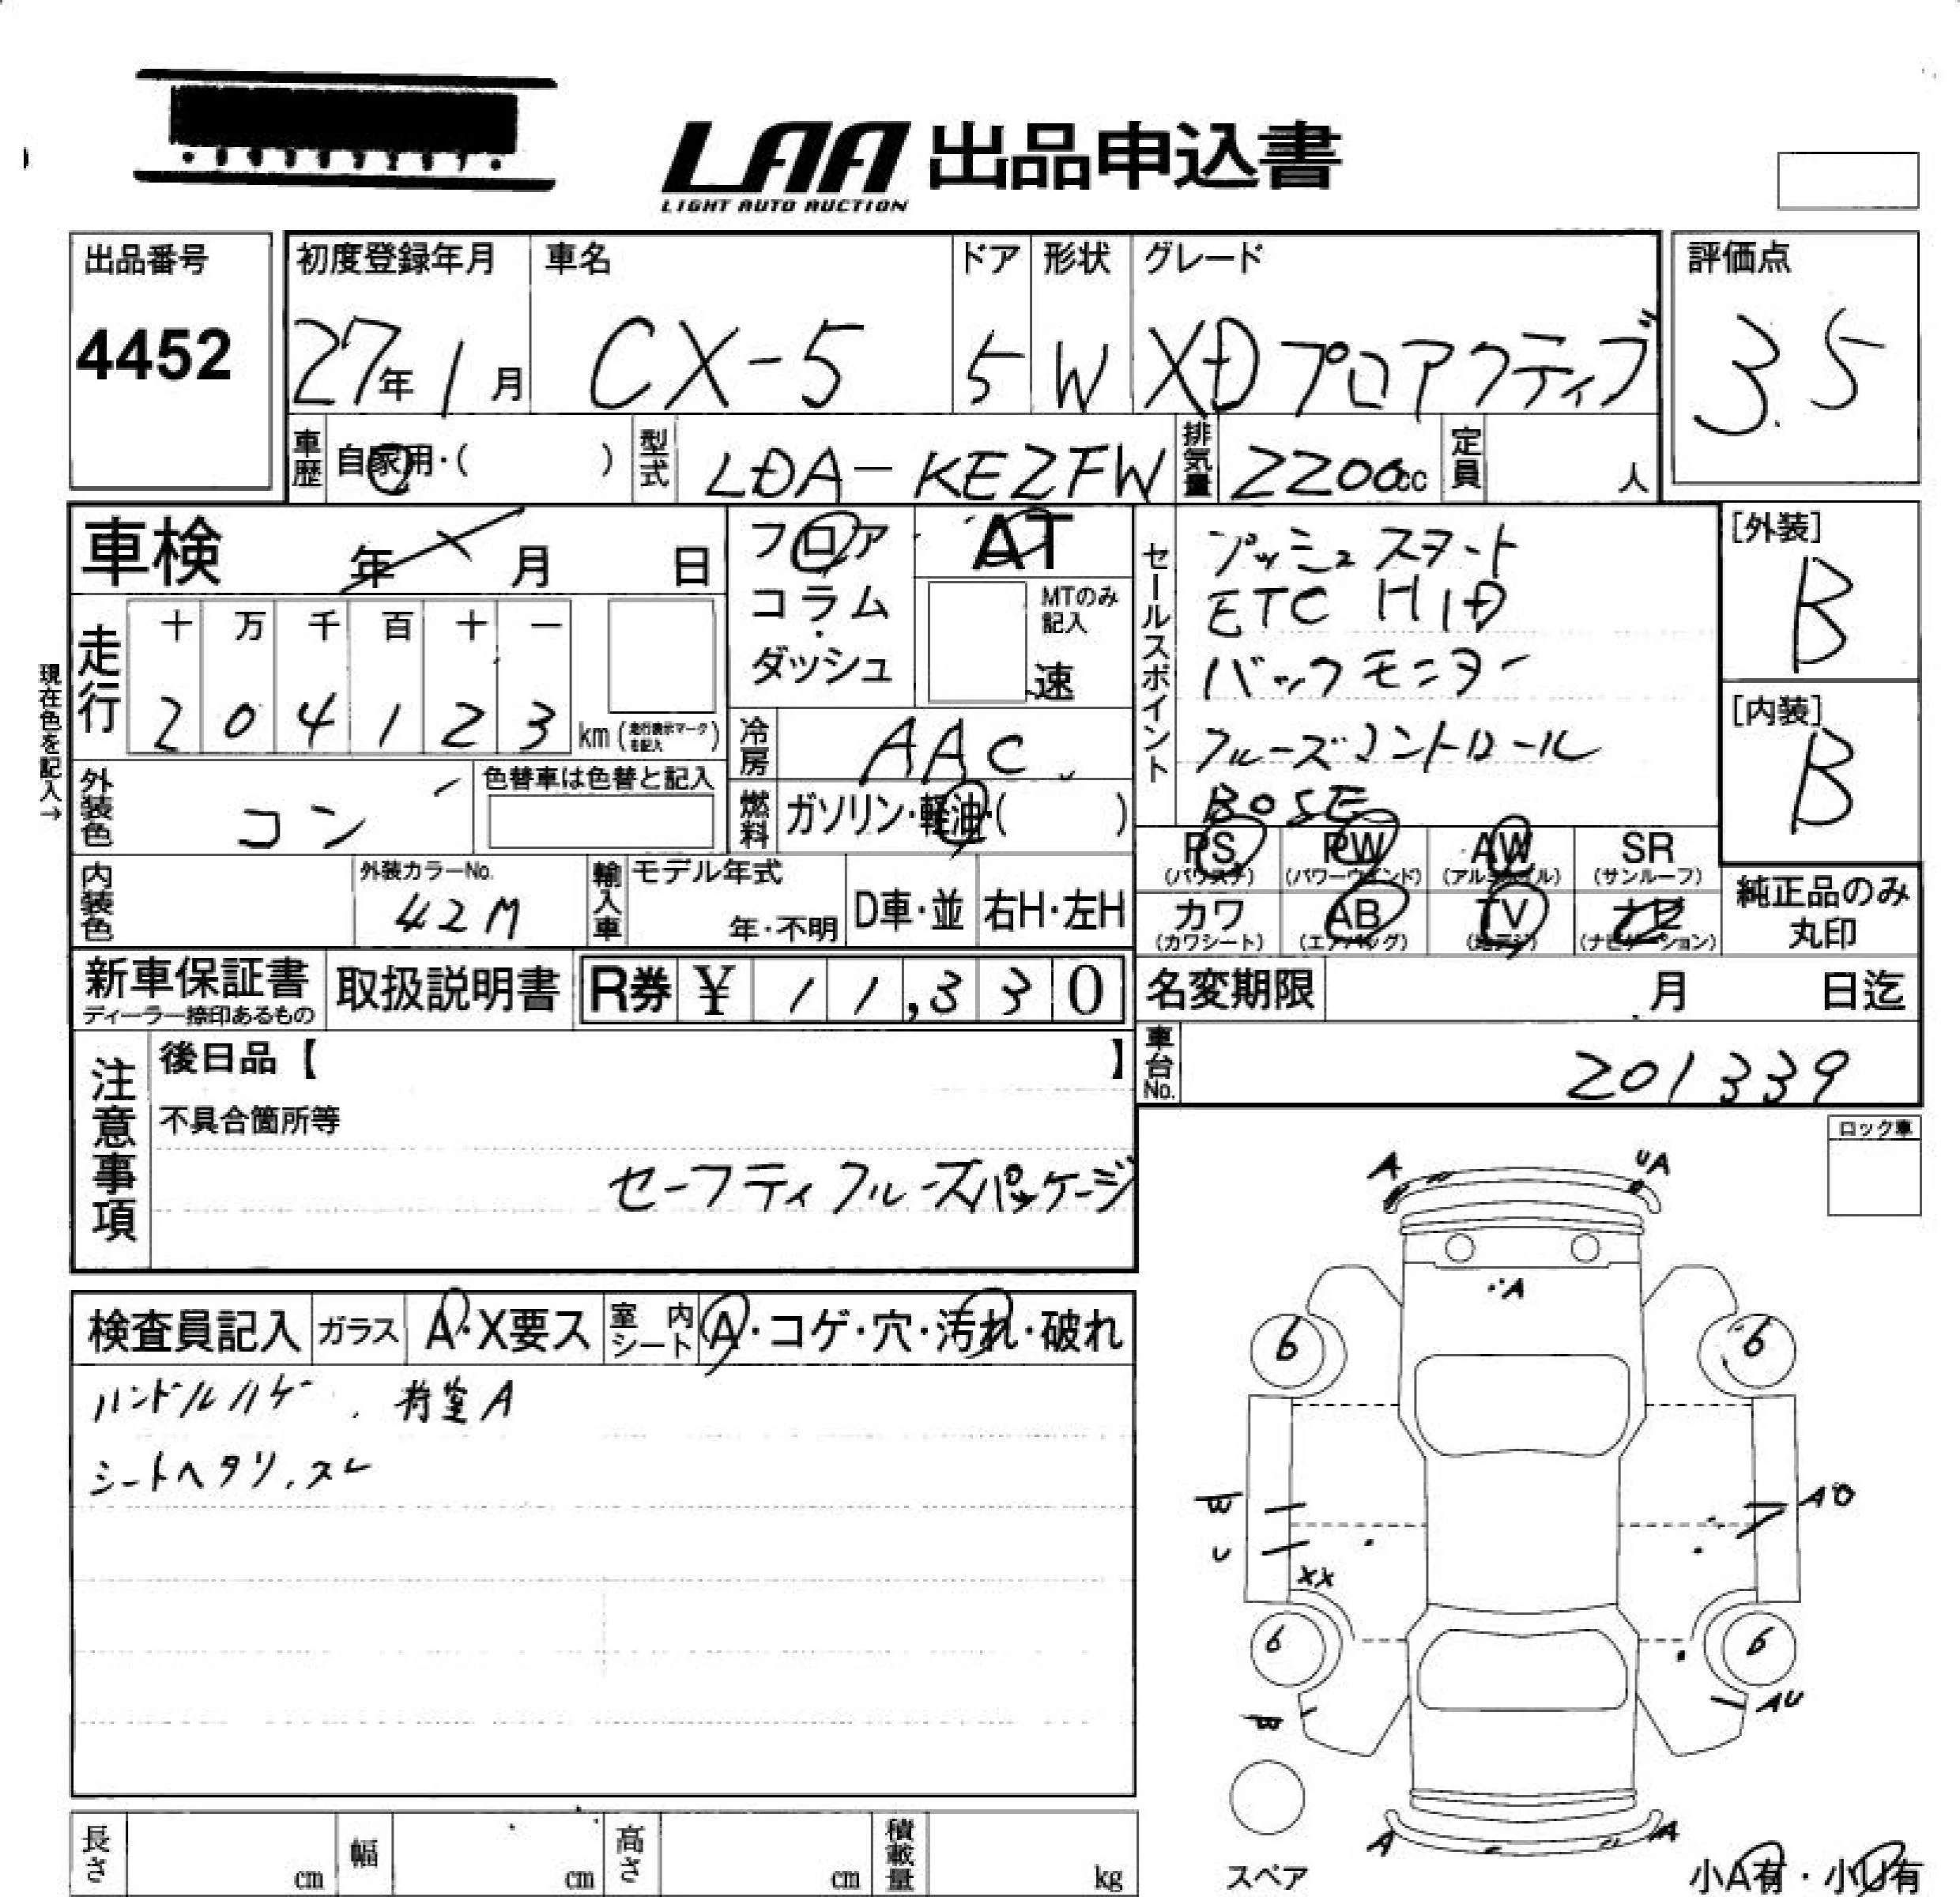 LAA 出品申込書
LIGHT AUTO AUCTION
出品番号 初度登録年月 車名 ドア 形状 グレード 評価点
4452 27年1月 CX-5 5 W XDプロアクティブ 3.5
車歴 自家用・( ) 型式 LDA-KE2FW 排気量 2200cc 定員 人
車検 年 月 日 フロア AT
コラム・ MTのみ記入
ダッシュ 速
セールスポイント プッシュスタート
ETC HID
バックモニター
クルーズコントロール
BOSE
[外装]
B
[内装]
B
現在色を記入→
走行 十 万 千 百 十 一
2 0 4 1 2 3 km (走行表示マークを記入)
冷房 AAC
外装色 コン 色替車は色替と記入
燃料 ガソリン・軽油・( )
PS PW AW SR
(パワステ) (パワーウインド) (アルミホイル) (サンルーフ)
カワ AB TV ナビ
(カワシート) (エアバッグ) (地デジ) (ナビゲーション)
純正品のみ
丸印
内装色 外装カラーNo. 輸入車 モデル年式
42M 年・不明 D車・並 右H・左H
新車保証書 取扱説明書 R券 ¥ 11,330 名変期限 月 日迄
ディーラー捺印あるもの
車台No. 201339
注意事項 後日品【 】
不具合箇所等
セーフティクルーズパッケージ
ロック車
検査員記入 ガラス A・X要ス 室内シート A・コゲ・穴・汚れ・破れ
ハンドルハゲ、荷室A
シートヘタリ、スレ
A UA
A
6 6
W
U
XX
6 6
AU
A A
スペア
小A有・小U有
長さ cm 幅 cm 高さ cm 積載量 kg